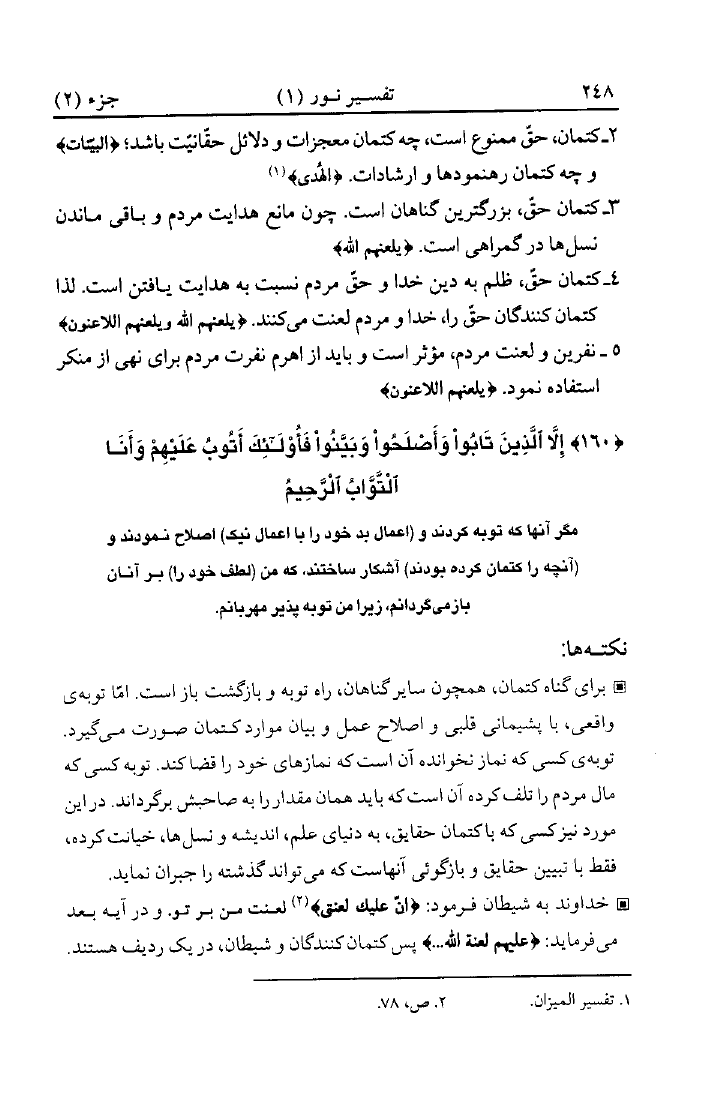 ۲۴۸ تفسیر نور (۱) جزء (۲)
۲ـ کتمان، حقّ ممنوع است، چه کتمان معجزات و دلائل حقّانیّت باشد؛ ﴿البیّنات﴾
و چه کتمان رهنمودها و ارشادات. ﴿الهُدی﴾(۱)
۳ـ کتمان حقّ، بزرگترین گناهان است. چون مانع هدایت مردم و باقی ماندن
نسل‌ها در گمراهی است. ﴿یلعنهم الله﴾
٤ـ کتمان حقّ، ظلم به دین خدا و حقّ مردم نسبت به هدایت یافتن است. لذا
کتمان کنندگان حقّ را، خدا و مردم لعنت می‌کنند. ﴿یلعنهم الله ویلعنهم اللاعنون﴾
۵ ـ نفرین و لعنت مردم، مؤثر است و باید از اهرم نفرت مردم برای نهی از منکر
استفاده نمود. ﴿یلعنهم اللاعنون﴾
﴿۱۶۰﴾ إِلَّا ٱلَّذِينَ تَابُواْ وَأَصْلَحُواْ وَبَيَّنُواْ فَأُوْلَـٰٓئِكَ أَتُوبُ عَلَيْهِمْ وَأَنَـا
ٱلتَّوَّابُ ٱلرَّحِيمُ
مگر آنها که توبه کردند و (اعمال بد خود را با اعمال نیک) اصلاح نـمودند و
(آنچه را کتمان کرده بودند) آشکار ساختند، که من (لطف خود را) بـر آنـان
بازمی‌گردانم، زیرا من توبه پذیر مهربانم.
نکتـه‌ها:
▣ برای گناه کتمان، همچون سایر گناهان، راه توبه و بازگشت باز است. امّا توبه‌ی
واقعی، با پشیمانی قلبی و اصلاح عمل و بیان موارد کـتمان صـورت مـی‌گیرد.
توبه‌ی کسی که نماز نخوانده آن است که نمازهای خود را قضا کند. توبه کسی که
مال مردم را تلف کرده آن است که باید همان مقدار را به صاحبش برگرداند. در این
مورد نیز کسی که با کتمان حقایق، به دنیای علم، اندیشه و نسل‌ها، خیانت کرده،
فقط با تبیین حقایق و بازگوئی آنهاست که می‌تواند گذشته را جبران نماید.
▣ خداوند به شیطان فـرمود: ﴿انّ علیك لعنتی﴾(۲) لعـنت مـن بـر تـو. و در آیـه بـعد
می‌فرماید: ﴿علیهم لعنة الله...﴾ پس کتمان کنندگان و شیطان، در یک ردیف هستند.
۱. تفسیر المیزان. ۲. ص، ۷۸.